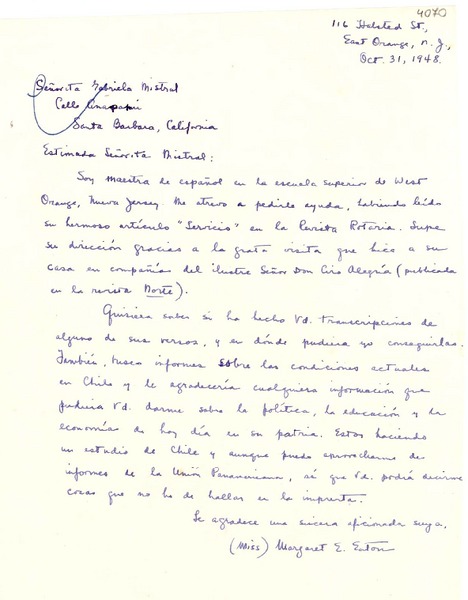 4070
116 Halsted St.,
East Orange, N. J.,
Oct. 31, 1948.
Señorita Gabriela Mistral
Calle Anapamú
Santa Barbara, California
Estimada Señorita Mistral:
Soy maestra de español en la escuela superior de West
Orange, Nueva Jersey. Me atrevo a pedirle ayuda, habiendo leído
su hermoso artículo "Servicio" en la Revista Rotaria. Supe
su dirección gracias a la grata visita que hice a su
casa en compañía del ilustre Señor Don Ciro Alegría (publicada
en la revista Norte).
Quisiera saber si ha hecho Vd. transcripciones de
alguno de sus versos, y en dónde pudiera yo conseguirlas.
También, busco informes sobre las condiciones actuales
en Chile y le agradecería cualquiera información que
pudiera Vd. darme sobre la política, la educación y la
economía de hoy día en su patria. Estoy haciendo
un estudio de Chile y aunque puedo aprovecharme de
informes de la Unión Panamericana, sé que Vd. podría decirme
cosas que no he de hallar en la imprenta.
Le agradece una sincera aficionada suya,
(Miss) Margaret E. Eaton